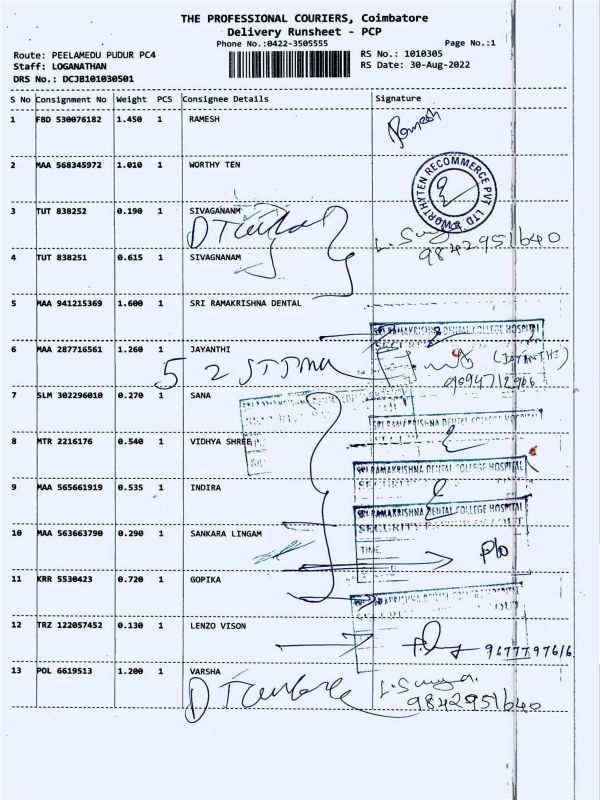 THE PROFESSIONAL COURIERS, Coimbatore
Delivery Runsheet - PCP
Phone No.:0422-3505555 Page No.:1
Route: PEELAMEDU PUDUR PC4 RS No.: 1010305
Staff: LOGANATHAN RS Date: 30-Aug-2022
DRS No.: DCJB101030501
S No Consignment No Weight PCS Consignee Details Signature
1 FBD 530076182 1.450 1 RAMESH Ramesh
2 MAA 568345972 1.010 1 WORTHY TEN
WORTHYTEN RECOMMERCE PVT LTD
3 TUT 838252 0.190 1 SIVAGANANM
9842951640
4 TUT 838251 0.615 1 SIVAGNANAM
5 MAA 941215369 1.600 1 SRI RAMAKRISHNA DENTAL
SRI RAMAKRISHNA DENTAL COLLEGE HOSPITAL
6 MAA 287716561 1.260 1 JAYANTHI (JAYANTHI)
9894712966
7 SLM 302296010 0.270 1 SANA
SRI RAMAKRISHNA DENTAL COLLEGE HOSPITAL
8 MTR 2216176 0.540 1 VIDHYA SHREE
SRI RAMAKRISHNA DENTAL COLLEGE HOSPITAL
9 MAA 565661919 0.535 1 INDIRA
SRI RAMAKRISHNA DENTAL COLLEGE HOSPITAL
SECURITY
10 MAA 563663790 0.290 1 SANKARA LINGAM
TIME
11 KRR 5530423 0.720 1 GOPIKA
12 TRZ 122057452 0.130 1 LENZO VISON
9677797616
13 POL 6619513 1.200 1 VARSHA
9842951640